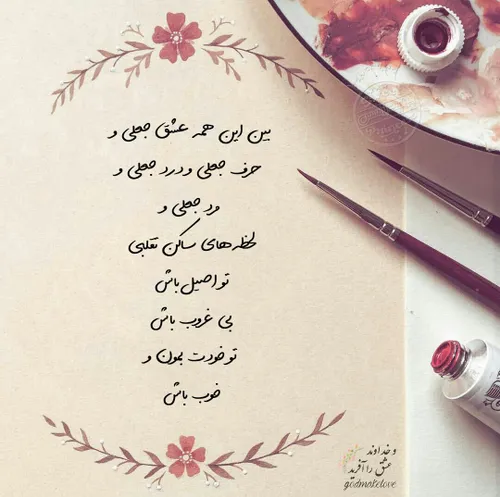 بین این همه عشق جعلی و
حرف جعلی و درد جعلی و
مرد جعلی و
لحظه‌های ساکن تقلبی
تو اصیل باش
بی غروب باش
تو خودت بمون و
خوب باش
و خداوند
عشق را آفرید
godmakelove